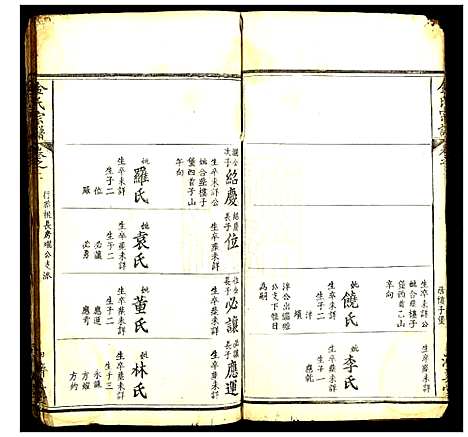 生卒未詳公
妣合葬樓子
堡西首乙山
辛向
妣饒氏
生卒未詳
生子二
洋
續
洋公出繼
公支下
為嗣
生卒葬未詳
妣李氏
生卒葬未詳
生子一
應乾
次子紹慶
生卒未詳公
妣合葬樓子
堡西首子山
午向
妣羅氏
生卒未詳
生子二
位
紹慶長子位
生卒葬未詳
妣袁氏
生卒葬未詳
生子二
必讓
必勇
位公長子必讓
生卒葬未詳
妣董氏
生卒葬未詳
生子二
應運
應考
必讓長子應運
生卒葬未詳
妣林氏
生卒葬未詳
生子三
方約
氏宗譜
長房曜公支派